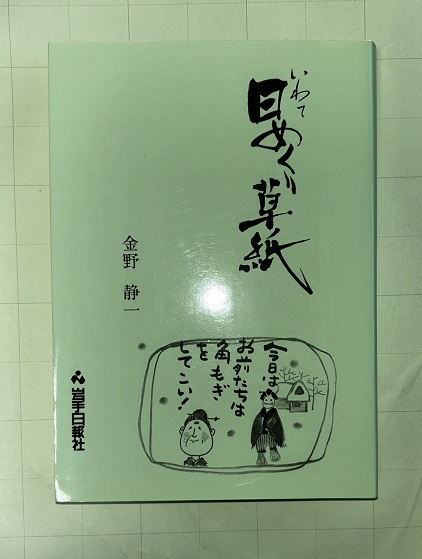 いわて
日めくり草紙
金野 静一
今日は
お前たちは
角もぎ
を
してこい!
岩手日報社